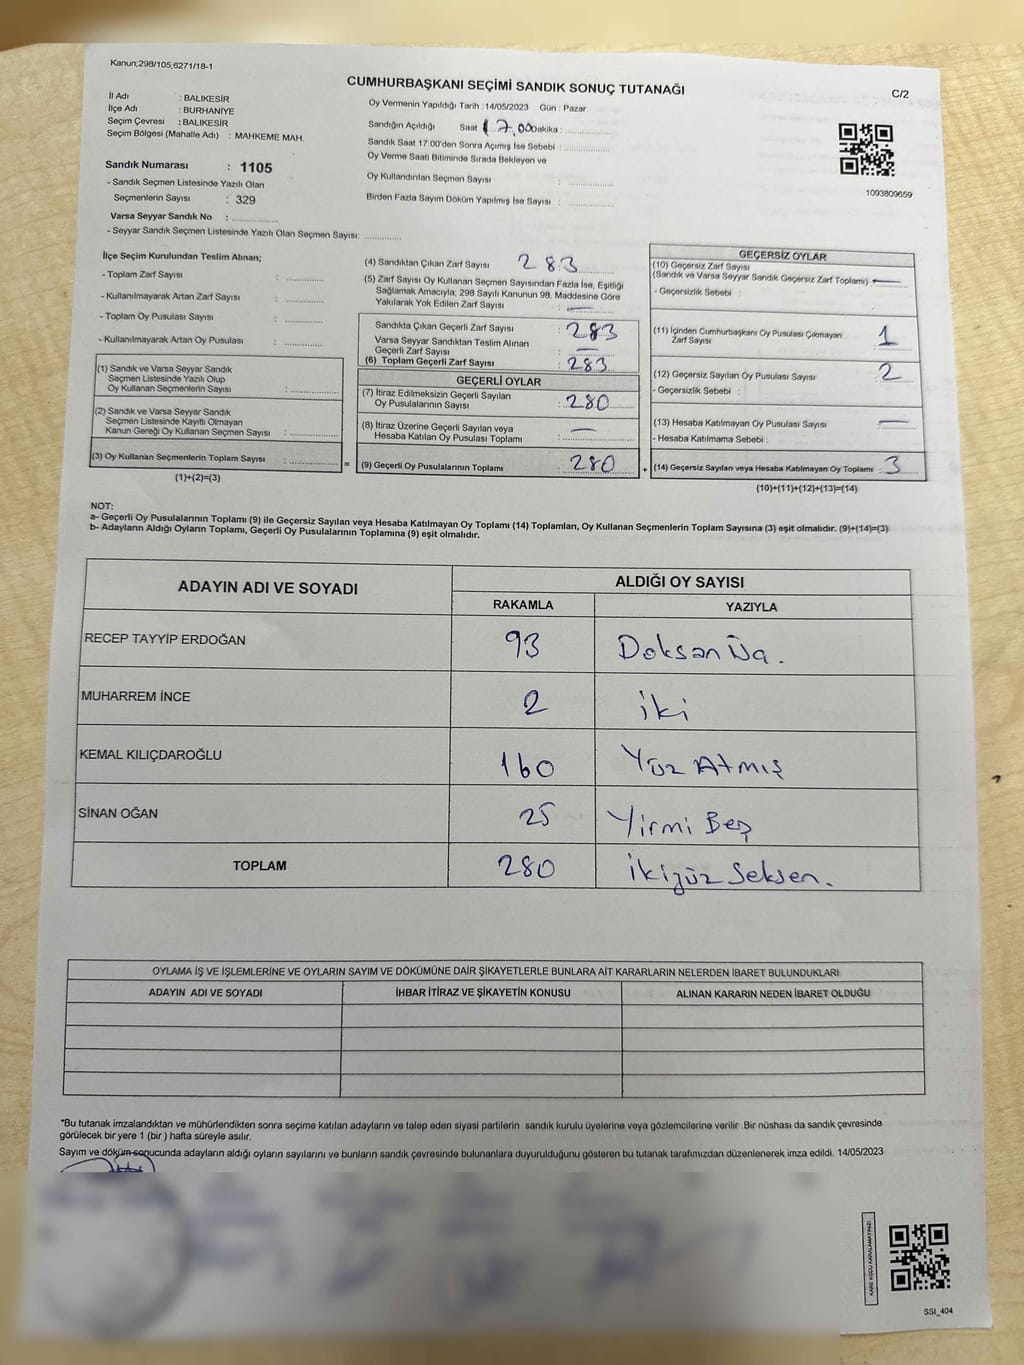 Kanun;298/105;6271/18-1
CUMHURBAŞKANI SEÇİMİ SANDIK SONUÇ TUTANAĞI
C/2
İl Adı : BALIKESİR
İlçe Adı : BURHANİYE
Seçim Çevresi : BALIKESİR
Seçim Bölgesi (Mahalle Adı) : MAHKEME MAH.
Sandık Numarası : 1105
- Sandık Seçmen Listesinde Yazılı Olan
Seçmenlerin Sayısı : 329
Varsa Seyyar Sandık No : ..............
- Seyyar Sandık Seçmen Listesinde Yazılı Olan Seçmen Sayısı: ..............
Oy Vermenin Yapıldığı Tarih : 14/05/2023 Gün : Pazar
Sandığın Açıldığı Saat 17.00 Dakika : ..............
Sandık Saat 17:00'den Sonra Açımış İse Sebebi : ..............
Oy Verme Saati Bitiminde Sırada Bekleyen ve
Oy Kullandırılan Seçmen Sayısı : ..............
Birden Fazla Sayım Döküm Yapılmış İse Sayısı : ..............
1093809659
İlçe Seçim Kurulundan Teslim Alınan;
- Toplam Zarf Sayısı : ..............
- Kullanılmayarak Artan Zarf Sayısı : ..............
- Toplam Oy Pusulası Sayısı : ..............
- Kullanılmayarak Artan Oy Pusulası : ..............
(1) Sandık ve Varsa Seyyar Sandık
Seçmen Listesinde Yazılı Olup
Oy Kullanan Seçmenlerin Sayısı : ..............
(2) Sandık ve Varsa Seyyar Sandık
Seçmen Listesinde Kayıtlı Olmayan
Kanun Gereği Oy Kullanan Seçmen Sayısı : ..............
(3) Oy Kullanan Seçmenlerin Toplam Sayısı : .............. =
(1)+(2)=(3)
(4) Sandıktan Çıkan Zarf Sayısı 283
(5) Zarf Sayısı Oy Kullanan Seçmen Sayısından Fazla İse, Eşitliği
Sağlamak Amacıyla, 298 Sayılı Kanunun 98. Maddesine Göre
Yakılarak Yok Edilen Zarf Sayısı : —
Sandıkta Çıkan Geçerli Zarf Sayısı : 283
Varsa Seyyar Sandıktan Teslim Alınan
Geçerli Zarf Sayısı : —
(6) Toplam Geçerli Zarf Sayısı : 283
GEÇERLİ OYLAR
(7) İtiraz Edilmeksizin Geçerli Sayılan
Oy Pusulalarının Sayısı : 280
(8) İtiraz Üzerine Geçerli Sayılan veya
Hesaba Katılan Oy Pusulası Toplamı : —
(9) Geçerli Oy Pusulalarının Toplamı : 280 +
GEÇERSİZ OYLAR
(10) Geçersiz Zarf Sayısı
(Sandık ve Varsa Seyyar Sandık Geçersiz Zarf Toplamı) : —
- Geçersizlik Sebebi :
(11) İçinden Cumhurbaşkanı Oy Pusulası Çıkmayan
Zarf Sayısı : 1
(12) Geçersiz Sayılan Oy Pusulası Sayısı : 2
- Geçersizlik Sebebi :
(13) Hesaba Katılmayan Oy Pusulası Sayısı : —
- Hesaba Katılmama Sebebi :
(14) Geçersiz Sayılan veya Hesaba Katılmayan Oy Toplamı : 3
(10)+(11)+(12)+(13)=(14)
NOT:
a- Geçerli Oy Pusulalarının Toplamı (9) ile Geçersiz Sayılan veya Hesaba Katılmayan Oy Toplamı (14) Toplamları, Oy Kullanan Seçmenlerin Toplam Sayısına (3) eşit olmalıdır. (9)+(14)=(3)
b- Adayların Aldığı Oyların Toplamı, Geçerli Oy Pusulalarının Toplamına (9) eşit olmalıdır.
ADAYIN ADI VE SOYADI ALDIĞI OY SAYISI
RAKAMLA YAZIYLA
RECEP TAYYİP ERDOĞAN 93 Doksan Üç.
MUHARREM İNCE 2 iki
KEMAL KILIÇDAROĞLU 160 Yüz Atmış
SİNAN OĞAN 25 Yirmi Beş
TOPLAM 280 ikiyüz Seksen.
OYLAMA İŞ VE İŞLEMLERİNE VE OYLARIN SAYIM VE DÖKÜMÜNE DAİR ŞİKAYETLERLE BUNLARA AİT KARARLARIN NELERDEN İBARET BULUNDUKLARI
ADAYIN ADI VE SOYADI İHBAR İTİRAZ VE ŞİKAYETİN KONUSU ALINAN KARARIN NEDEN İBARET OLDUĞU
*Bu tutanak imzalandıktan ve mühürlendikten sonra seçime katılan adayların ve talep eden siyasi partilerin sandık kurulu üyelerine veya gözlemcilerine verilir. Bir nüshası da sandık çevresinde
görülecek bir yere 1 (bir ) hafta süreyle asılır.
Sayım ve döküm sonucunda adayların aldığı oyların sayılarını ve bunların sandık çevresinde bulunanlara duyurulduğunu gösteren bu tutanak tarafımızdan düzenlenerek imza edildi. 14/05/2023
KARE KODU KARALAMAYINIZ!
SSI_404